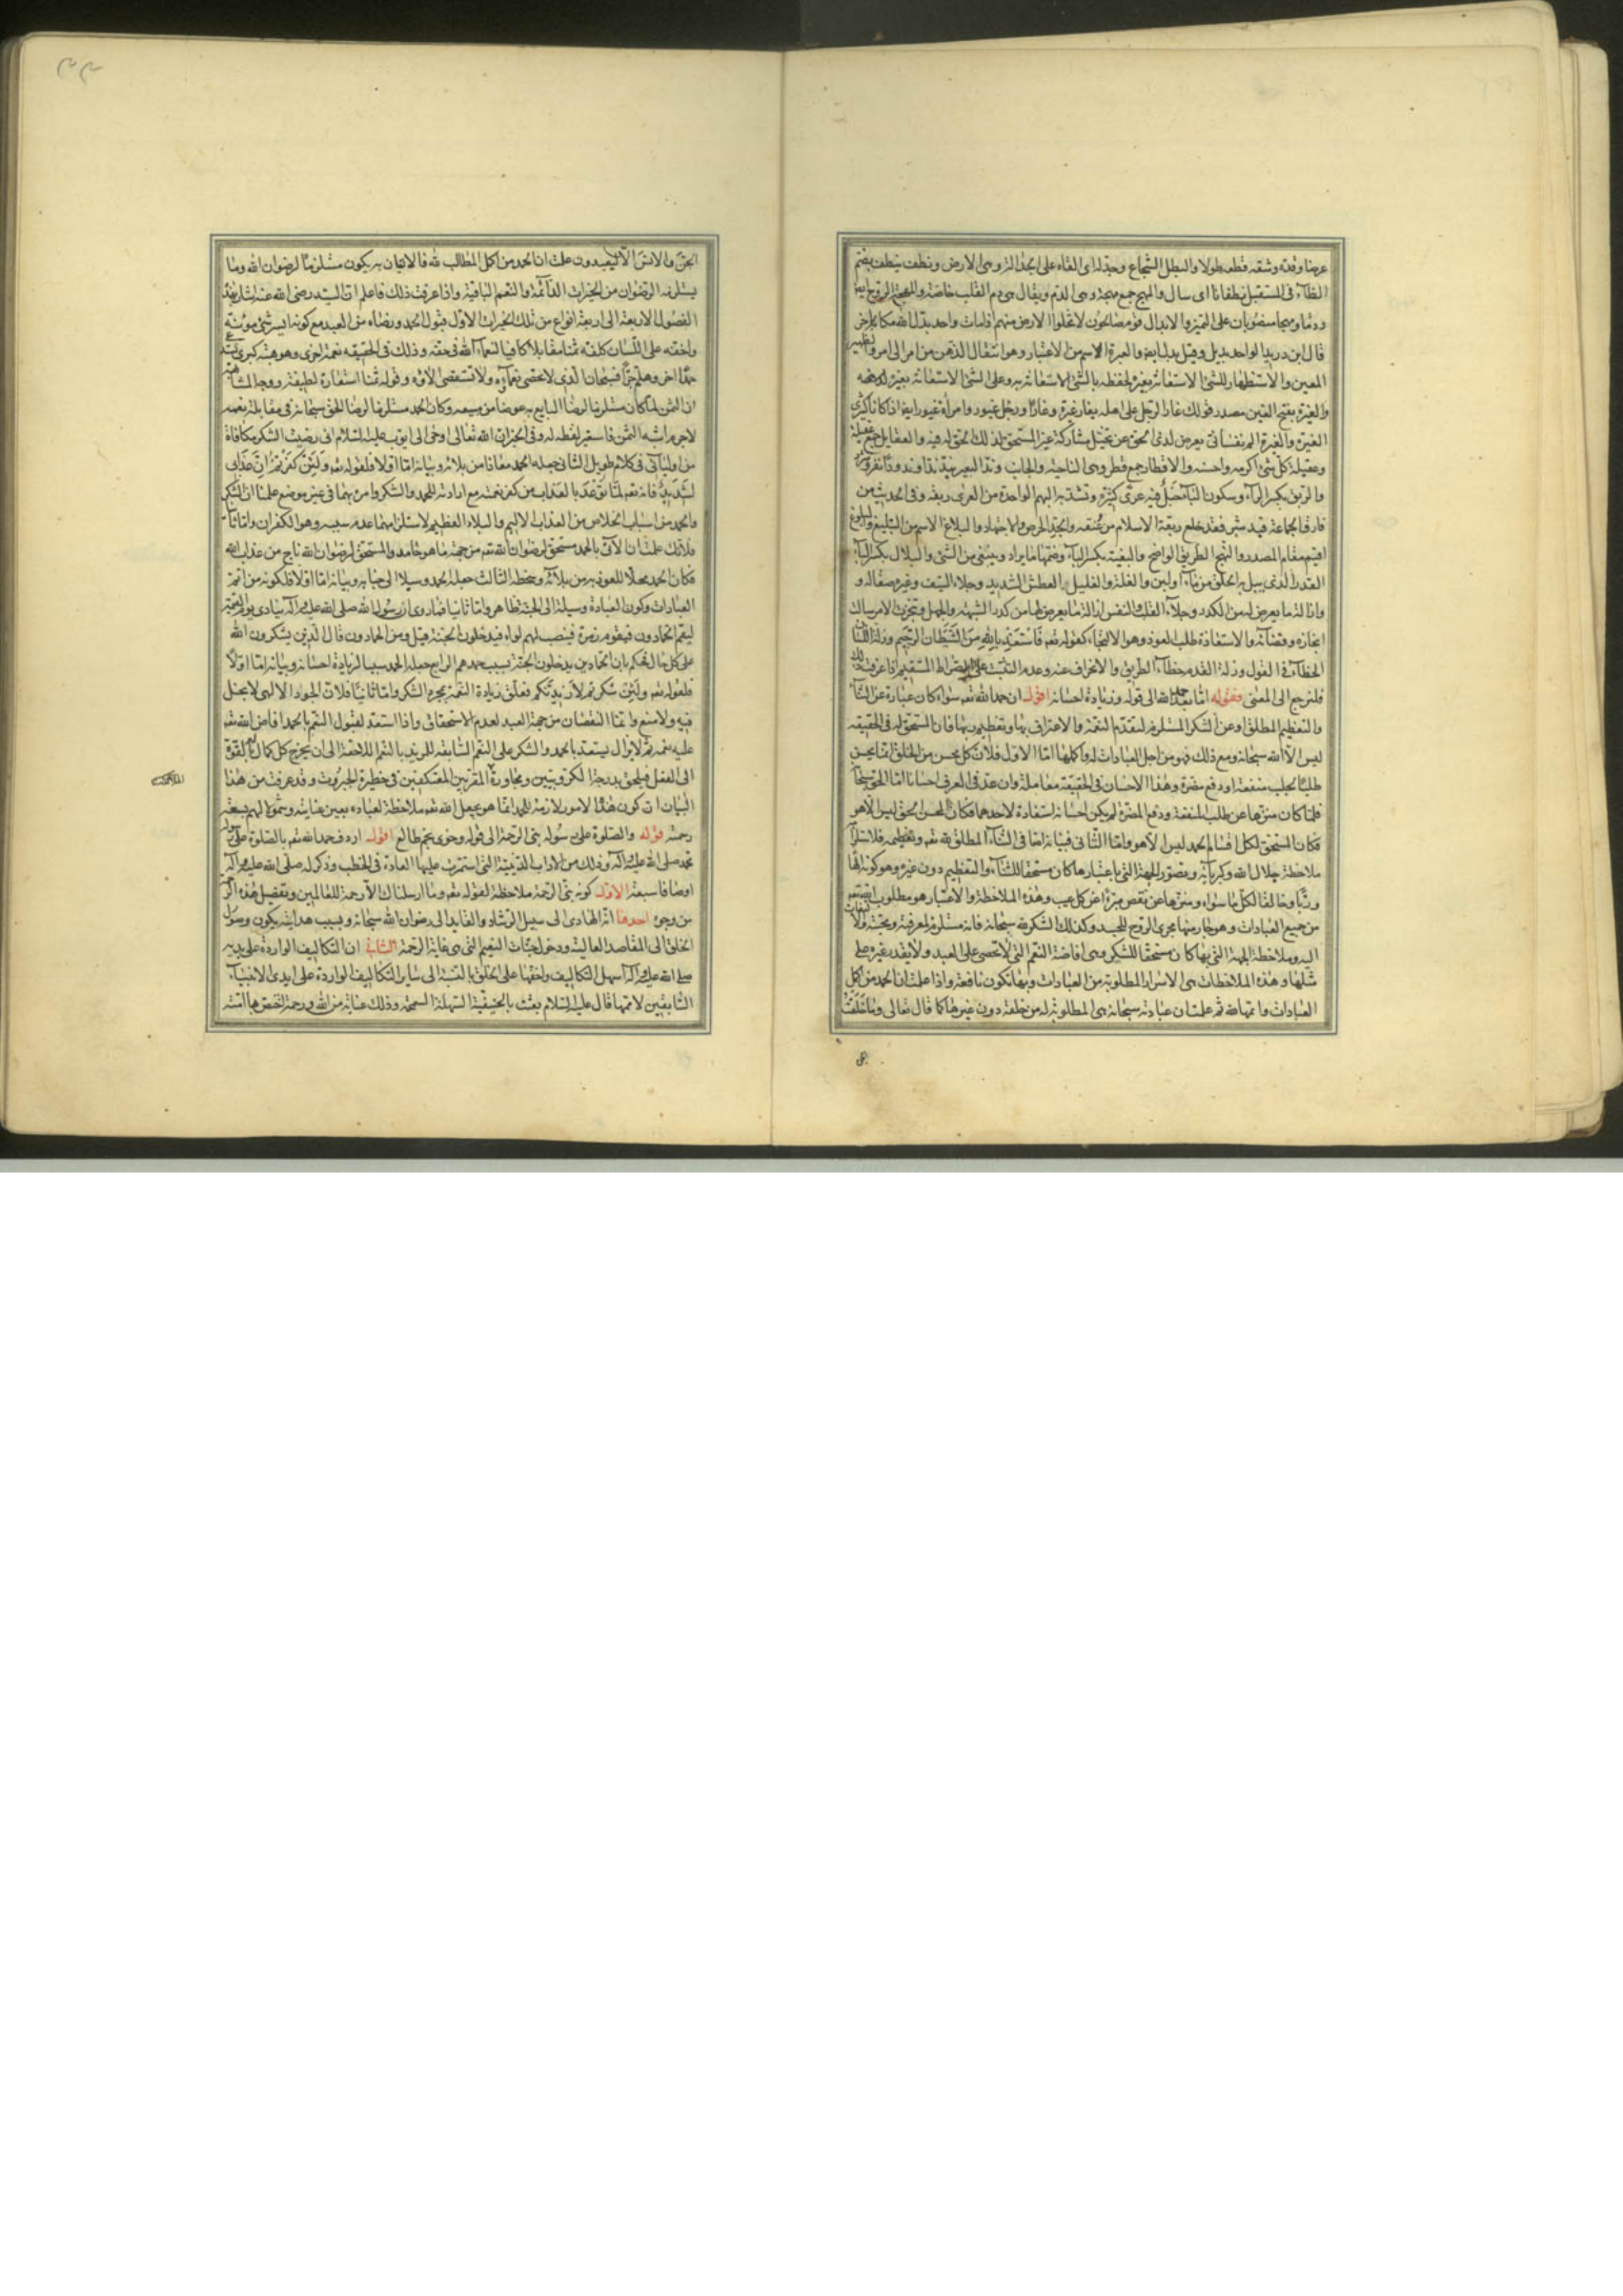 عرضا وقدّه وشقه قطعه طولا والبطل الشجاع وجدله اى القاه على الجدالة وهى الارض ونطف ينطف بضم
الطاء فى المستقبل نطفانا اى سال والمهج جمع مهجة وهى الدم ويقال هى دم القلب خاصة والمهجة الروح ايضا
ودما ومهجا منصوبان على التميز والابدال قوم صالحون لا تخلوا الارض منهم اذا مات واحد بدل الله مكانه اخر
قال ابن دريد الواحد بديل وقيل بدل ايضا والعبرة الاسم من الاعتبار وهو انتقال الذهن من امر الى امر والظهير
المعين والاستظهار للشئ الاستعانة بغيره لحفظه بالشئ الاستعانة به وعلى الشئ الاستعانة بغيره لدفعه
والغيرة بفتح الغين مصدر قولك غار الرجل على اهله يغار غيرة وغارا ورجل غيور وامراة غيور ايضا اذا كانا كثيرى
الغيرة والغيرة الم نفسانى يعرض لذى الحق عن تخيّل مشاركة غير المستحق لذلك الحق له فيه والعقايل جمع عقيلة
وعقيلة كلّ شئ اكرمه واحسنه والاقطار جمع قطر وهى الناحية والجانب وندّ البعير يندّ ندّا وندودا نفر وشرد
والربق بكسر الراء وسكون الباء حبل فيه عرى كثيرة وتشدّ به البهم الواحدة من العرى ربقة وفى الحديث من
فارق الجماعة قيد شبر فقد خلع ربقة الاسلام من عنقه والجدّ الحرص والاجتهاد والبلاغ الاسم من التبليغ والبلوغ
اقيم مقام المصدر والنهج الطريق الواضح والبغية بكسر الباء وضمها ما يراد ويبتغى من الشئ والبلال بكسر الباء
القدر الذى يبل به الحلق من ماء او لبن والغلة والغليل العطش الشديد وجلاء السيف وغيره صقاله و
واذالة ما يعرض له من الكدر وجلاء القلب والنفس ازالة ما يعرض لها من كدر الشبهة والجهل وتنجّزت الامر سالت
انجازه وقضاءه والاستعاذة طلب العوذ وهو الالتجاء كقوله تعه فَاسْتَعِذْ بِاللَّهِ مِنَ الشَّيْطَانِ الرَّجِيمِ وزلة اللسان
الخطاء فى القول وزلة القدم خطاء الطريق والانحراف عنه وعدم التثبت على الصراط المستقيم اذا عرفت ذلك
فلنرجع الى المعنى فقوله امّا بعد حمد الله الى قوله وزيادة احسانه اقول ان حمد الله تعه سواء كان عبارة عن الثناء
والتعظيم المطلق او عن الشكر المستلزم لتقدّم النعمة والاعتراف بها وتعظيم ربها فان المستحق له فى الحقيقة
ليس الّا الله سبحانه ومع ذلك فهو من اجل العبادات له واكملها امّا الاول فلانّ كل محسن من الخلق انما يحسن
طلبًا لجلب منفعة او دفع مضرة وهذا الاحسان فى الحقيقة معاملة وان عدّ فى العرف احسانا امّا الحق سبحانه
فلمّا كان منزها عن طلب المنفعة ودفع المضرّة لم يكن احسانه استفادة لاحدهما فكان المحسن المحق ليس الّا هو
فكان المستحق لكل اقسام الحمد ليس الّا هو وامّا الثانى فبيانه امّا فى الثناء المطلق لله تعه وتعظيمه فلاستلزامه
ملاحظة جلال الله وكبريائه وتصوّر الجهة التى باعتبارها كان مستحقّا للثناء والتعظيم دون غيره وهو كونه الها
وربّا وخالقا لكلّ ما سواه ومنزها عن نقص مبرّءا عن كل عيب وهذه الملاحظة والاعتبار هو مطلوب الله تعه
من جميع العبادات وهو جار منها مجرى الروح للجسد وكذلك الشكر لله سبحانه فانه مستلزم لمعرفته ومحبته والالتفات
اليه وملاحظة الجهة التى بها كان مستحقا للشكر وهى افاضة النعم التى لا تحصى على العبد ولا يقدر غيره على
مثلها وهذه الملاحظات هى الاسرار المطلوبة من العبادات وبها تكون نافعة واذا علمت ان الحمد من اكمل
العبادات واتمها لله ثم علمت ان عبادته سبحانه هى المطلوبة له من خلقه دون غيرها كما قال تعالى وَمَا خَلَقْتُ
الجِنَّ والانسَ الّا ليعبدون علمت ان الحمد من اكمل المطالب لله فالاتيان به يكون مستلزمًا لرضوان الله وما
يستلزمه الرضوان من الخيرات الدائمة والنعم الباقية واذا عرفت ذلك فاعلم انّ السيد رضى الله عنه اشار بهذه
الفصول الاربعة الى اربعة انواع من تلك الخيرات الاول قبول الحمد ورضاه من العبد مع كونه ايسر شئ موٴنة
واخفه على اللسان كلفة ثمنا مقابلا كافيا لنعماء الله فى حقه وذلك فى الحقيقة نعمة اخرى وهو هبة كبرى يستدعى
حمدًا اخر وهلمّ جرّا فسبحان الّذى لا تحصى نعماؤه ولا تستقصى الاؤه وقوله ثمنا استعارة لطيفة ووجه المشابهة
ان الثمن لمّا كان مستلزما لرضا البايع به عوضا من مبيعه وكان الحمد مستلزما لرضا الحق سبحانه فى مقابلة نعمه
لاجرم اشبه الثمن فاستعير لفظه له وفى الخبر ان الله تعالى اوحى الى ايوب عليه السلام انى رضيت الشكر مكافاة
من اوليائى فى كلام طويل الثانى جعله الحمد معاذا من بلائه وبيانه امّا اوّلا فلقوله تعه وَلَئِنْ كَفَرْتُمْ اِنَّ عَذَابِى
لَشَدِيدٌ فانه تعه لمّا توعّد بالعذاب من كفر نعمته مع ارادته للحمد والشكر وامره بهما فى غير موضع علمنا انّ الشكر
والحمد من اسباب الخلاص من العذاب الاليم والبلاء العظيم لاستلزامهما عدم سببه وهو الكفران وامّا ثانيًا
فلانّك علمت ان الآتى بالحمد مستحق لرضوان الله تعه من جهة ما هو حامد والمستحق لرضوان الله ناج من عذاب الله
فكان الحمد محلّا للعوذ به من بلائه وسخطه الثالث جعله الحمد وسيلا الى جنابه وبيانه امّا اوّلا فلكونه من اتم
العبادات وكون العبادة وسيلة الى الجنّة ظاهر وامّا ثانيا فلما روى ان رسول الله صلى الله عليه وآله ينادى يوم القيمة
ليقم الحمّادون فيقوم زمرة فينصب لهم لواء فيدخلون الجنة قيل ومن الحمّادون قال الّذين يشكرون الله
على كل حال فحكم بان الحمّادين يدخلون الجنّة بسبب حمدهم الرابع جعله الحمد سببا لزيادة احسانه وبيانه امّا اوّلًا
فلقوله تعه وَلَئِنْ شَكَرْتُمْ لَاَزِيدَنَّكُمْ فعلّق زيادة النعمة بمجرد الشكر وامّا ثانيًا فلانّ الجود الالهى لا بخل
فيه ولا منع وانّما النقصان من جهة العبد لعدم الاستحقاق واذا استعدّ لقبول النعم بالحمد افاض الله تعه
عليه نعمه ثم لا يزال يستعد بالحمد والشكر على النعم السّابقة للمزيد بالنعم اللاحقة الى ان يخرج كل كمال له بالقوّة
الى الفعل فيلحق بدرجة الكرّوبيّين ومجاورة المقرّبين المعتكفين فى حظيرة الجبروت وقد عرفت من هذا
البيان انّ كون هذه الامور لازمة للحمد انّما هو بجعل الله تعه ملاحظة لعباده بعين عنايته وشمولا لهم بسعة
رحمته قوله والصلوة على رسوله نبىّ الرحمة الى قوله وخوى نجم طالع اقول اردف حمد الله تعه بالصلوة على رسوله
محمد صلى الله عليه وآله وذلك من الاداب الدينيّة التى استمرّت عليها العادة فى الخطب وذكر له صلّى الله عليه وآله
اوصافا سبعة الاوّل كونه نبىّ الرحمة ملاحظة لقوله تعه وما ارسلناك الّا رحمة للعالمين وتفصيل هذه الرحمة
من وجوه احدها انه الهادى الى سبيل الرشاد والقايد الى رضوان الله سبحانه وبسبب هدايته يكون وصول
الخلق الى المقاصد العالية ودخول جنّات النعيم التى هى غاية الرحمة الثانى ان التكاليف الواردة على يديه
صلى الله عليه وآله اسهل التكاليف واخفها على الخلق بالنسبة الى ساير التكاليف الواردة على ايدى الانبياء
السّابقين لاممها قال عليه السلام بعثت بالحنيفيّة السّهلة السمحة وذلك عناية من الله ورحمة اختص بها امّته